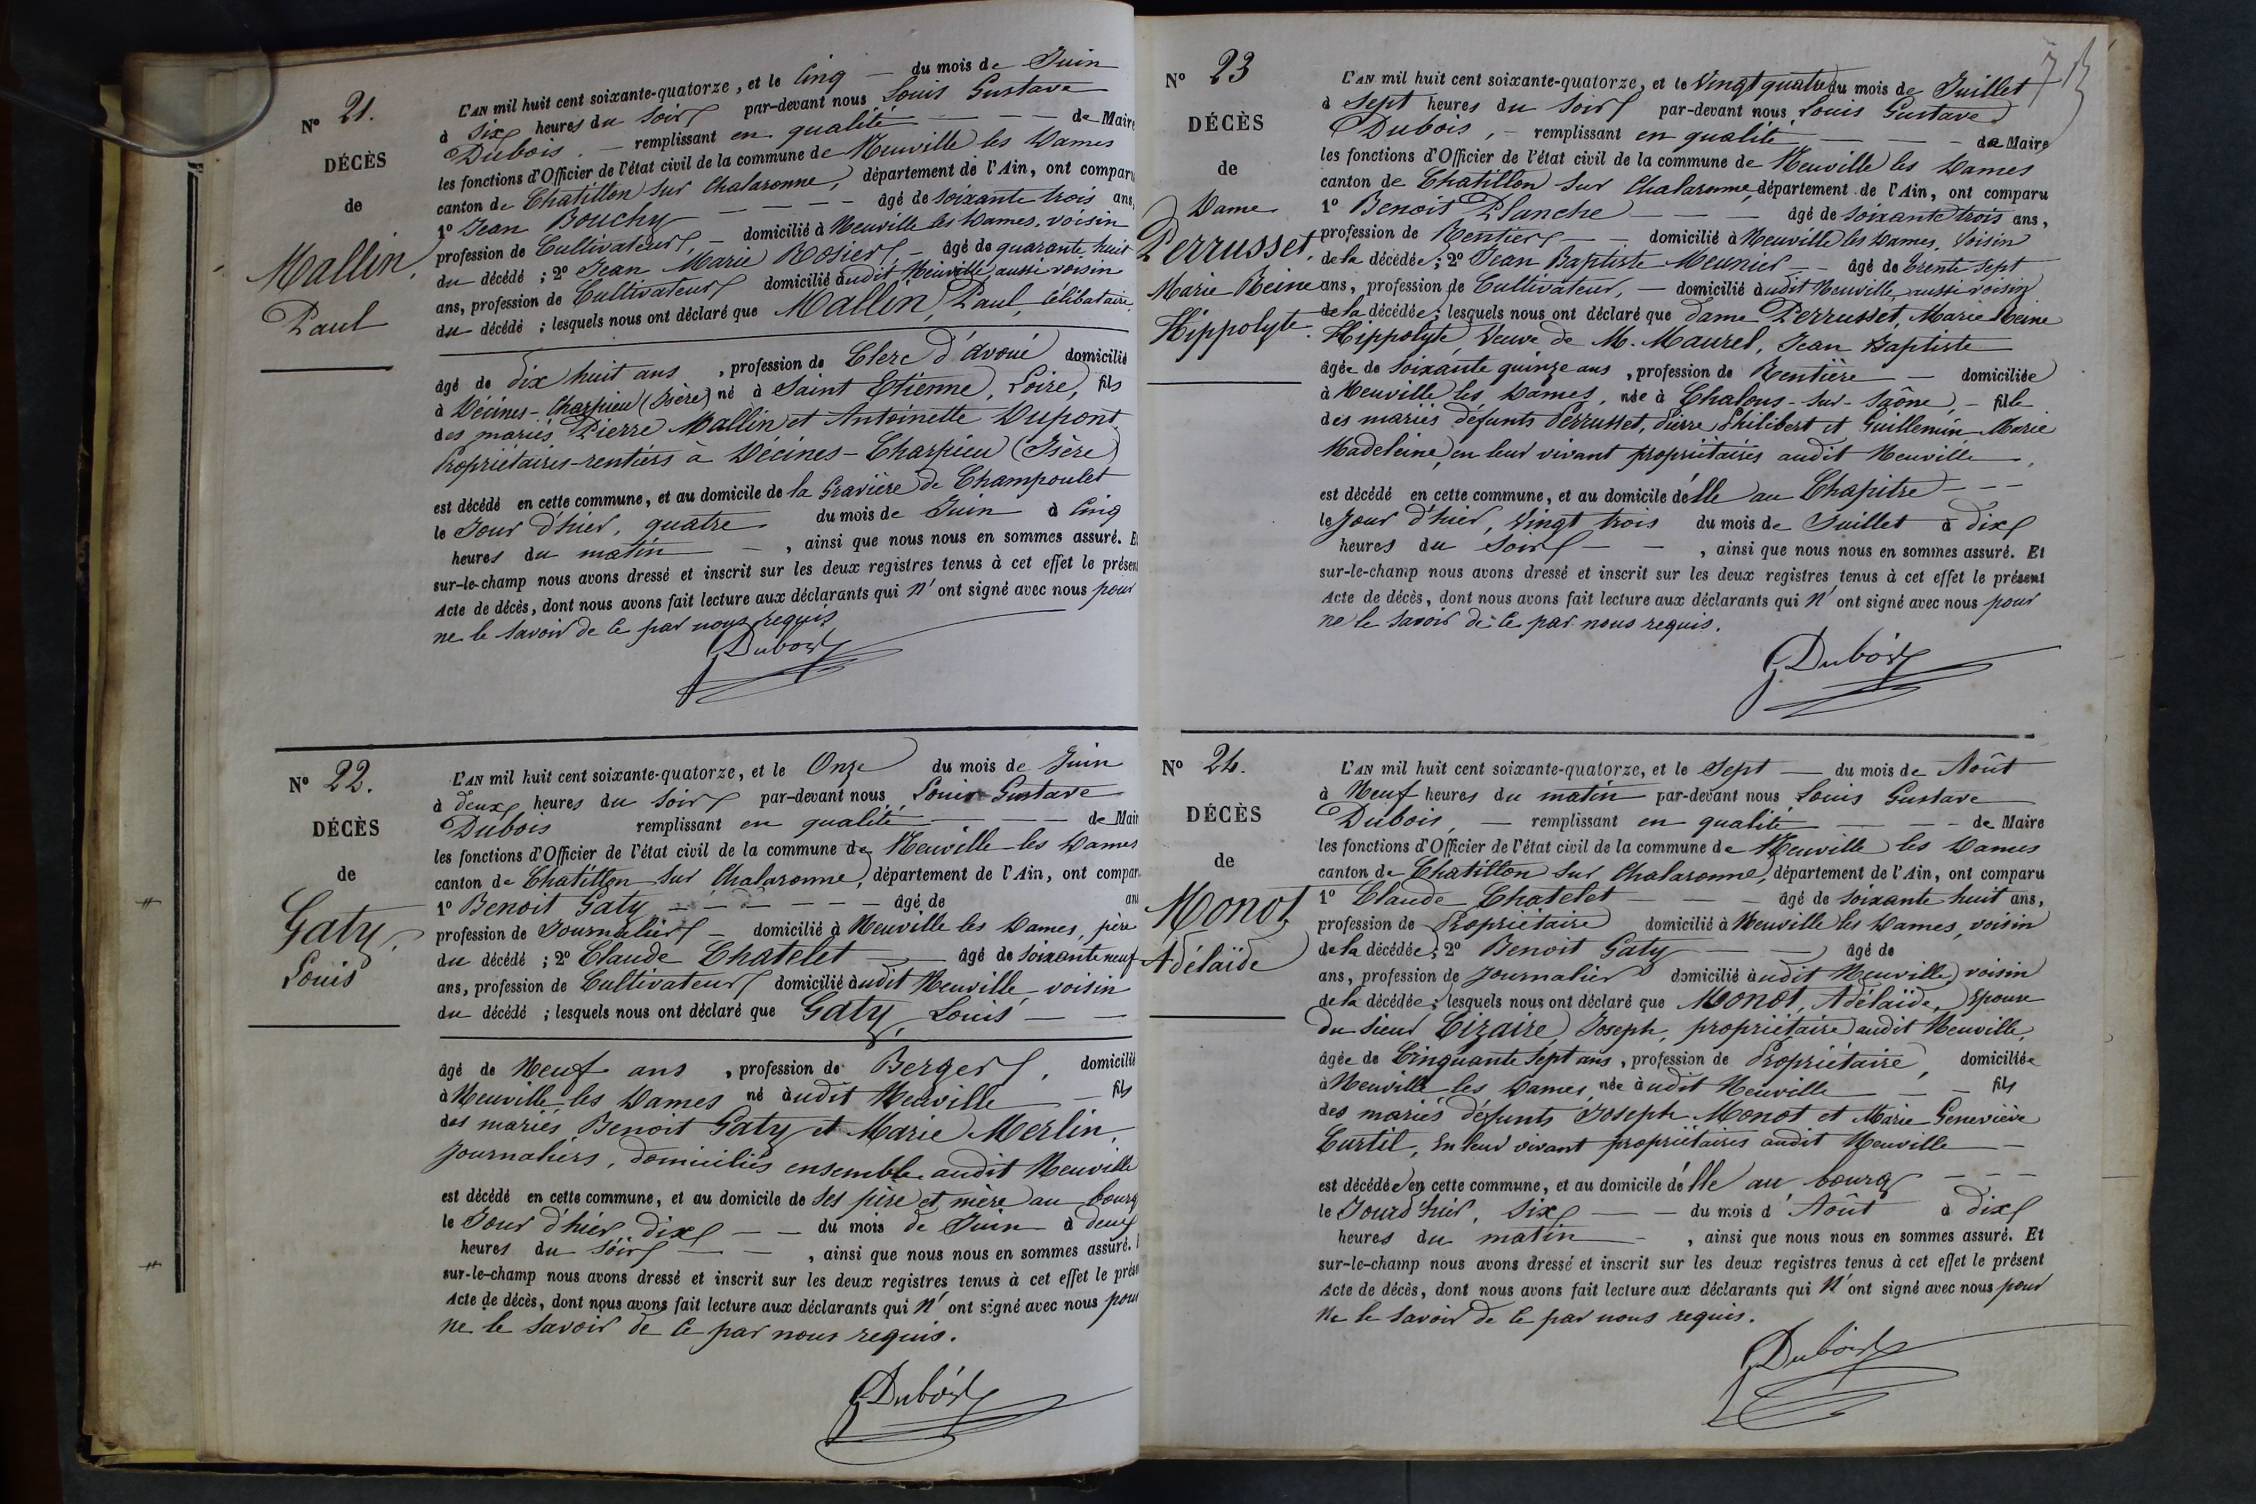 N° 21.
DÉCÈS
de
Mallin,
Paul
L'AN mil huit cent soixante-quatorze, et le Cinq — du mois de Juin
à Six heures du Soir par-devant nous Louis Gustave
Dubois. — remplissant en qualité — — — de Maire
les fonctions d'Officier de l'état civil de la commune de Neuville les Dames
canton de Chatillon sur Chalaronne, département de l'Ain, ont comparu
1° Jean Bouchy — — — — âgé de soixante trois ans,
profession de Cultivateur, — domicilié à Neuville les Dames, voisin
du décédé ; 2° Jean Marie Rosier, — âgé de quarante huit
ans, profession de Cultivateur domicilié audit Neuville, aussi voisin
du décédé ; lesquels nous ont déclaré que Mallin, Paul, célibataire,
âgé de dix huit ans , profession de Clerc d'avoué domicilié
à Décines-Charpieu (Isère) né à Saint Etienne, Loire, fils
des mariés Pierre Mallin et Antoinette Dupont
Propriétaires-rentiers à Décines-Charpieu (Isère)
est décédé en cette commune, et au domicile de la Gravière de Champoulet
le Jour d'hier, quatre du mois de Juin à Cinq
heures du matin — , ainsi que nous nous en sommes assuré. E
sur-le-champ nous avons dressé et inscrit sur les deux registres tenus à cet effet le présent
Acte de décès, dont nous avons fait lecture aux déclarants qui n' ont signé avec nous pour
ne le savoir de ce par nous requis.
GDubois
N° 22.
DÉCÈS
de
Gaty,
Louis
L'AN mil huit cent soixante-quatorze, et le Onze du mois de Juin
à deux heures du Soir par-devant nous Louis Gustave
Dubois remplissant en qualité — — — de Mair
les fonctions d'Officier de l'état civil de la commune de Neuville les Dames
canton de Chatillon sur Chalaronne, département de l'Ain, ont compar
1° Benoit Gaty — — — — — — âgé de an
profession de Journalier — domicilié à Neuville les Dames, père
du décédé ; 2° Claude Chatelet — âgé de soixante neuf
ans, profession de Cultivateur domicilié audit Neuville, voisin
du décédé ; lesquels nous ont déclaré que Gaty, Louis — —
âgé de Neuf ans , profession de Berger, domicilié
à Neuville les Dames né audit Neuville — fils
des mariés Benoit Gaty et Marie Merlin,
Journaliers, domiciliés ensemble audit Neuville
est décédé en cette commune, et au domicile de ses père et mère au bourg
le Jour d'hier, dix — — du mois de Juin à deux
heures du soir — — , ainsi que nous nous en sommes assuré.
sur-le-champ nous avons dressé et inscrit sur les deux registres tenus à cet effet le prése
Acte de décès, dont nous avons fait lecture aux déclarants qui n' ont signé avec nous pour
ne le savoir de ce par nous requis.
GDubois
N° 23
DÉCÈS
de
Dame
Perrusset,
Marie Reine
Hippolyte.
L'AN mil huit cent soixante-quatorze, et le Vingt quatre du mois de Juillet
à Sept heures du Soir par-devant nous Louis Gustave
Dubois, — remplissant en qualité — — — de Maire
les fonctions d'Officier de l'état civil de la commune de Neuville les Dames
canton de Chatillon sur Chalaronne, département de l'Ain, ont comparu
1° Benoit Planche — — — âgé de soixante trois ans,
profession de Rentier — — domicilié à Neuville les Dames, voisin
de la décédée ; 2° Jean Baptiste Meunier — âgé de trente sept
ans, profession de Cultivateur, — domicilié audit Neuville, aussi voisin
de la décédée ; lesquels nous ont déclaré que dame Perrusset, Marie Reine
Hippolyte, Veuve de M. Maurel, Jean Baptiste
âgée de soixante quinze ans , profession de Rentière — domiciliée
à Neuville les Dames, née à Chalons-sur-Saône, — fille
des mariés défunts Perrusset, Pierre Philibert et Guillemin Marie
Madeleine, en leur vivant propriétaires audit Neuville
est décédé en cette commune, et au domicile d'elle au Chapitre — — —
le Jour d'hier, Vingt trois du mois de Juillet à dix
heures du Soir — — , ainsi que nous nous en sommes assuré. Et
sur-le-champ nous avons dressé et inscrit sur les deux registres tenus à cet effet le présent
Acte de décès, dont nous avons fait lecture aux déclarants qui n' ont signé avec nous pour
ne le savoir de ce par nous requis.
GDubois
N° 24.
DÉCÈS
de
Monot
Adélaïde
L'AN mil huit cent soixante-quatorze, et le Sept — du mois de Août
à Neuf heures du matin par-devant nous Louis Gustave
Dubois, — remplissant en qualité — — — de Maire
les fonctions d'Officier de l'état civil de la commune de Neuville les Dames
canton de Chatillon sur Chalaronne, département de l'Ain, ont comparu
1° Claude Chatelet — — — âgé de soixante huit ans,
profession de Propriétaire domicilié à Neuville les Dames, voisin
de la décédée ; 2° Benoit Gaty — — âgé de
ans, profession de Journalier domicilié audit Neuville, voisin
de la décédée ; lesquels nous ont déclaré que Monot, Adélaïde, Epouse
du sieur Cizaire, Joseph, propriétaire audit Neuville,
âgée de Cinquante Sept ans , profession de Propriétaire, domiciliée
à Neuville les Dames, née audit Neuville — — fils
des mariés défunts Joseph Monot et Marie Geneviève
Curtil, En leur vivant propriétaires audit Neuville —
est décédée en cette commune, et au domicile d'elle au bourg — — —
le Jour d'hier, Six — — du mois d' Août à dix
heures du matin — , ainsi que nous nous en sommes assuré. Et
sur-le-champ nous avons dressé et inscrit sur les deux registres tenus à cet effet le présent
Acte de décès, dont nous avons fait lecture aux déclarants qui n' ont signé avec nous pour
ne le savoir de ce par nous requis.
GDubois